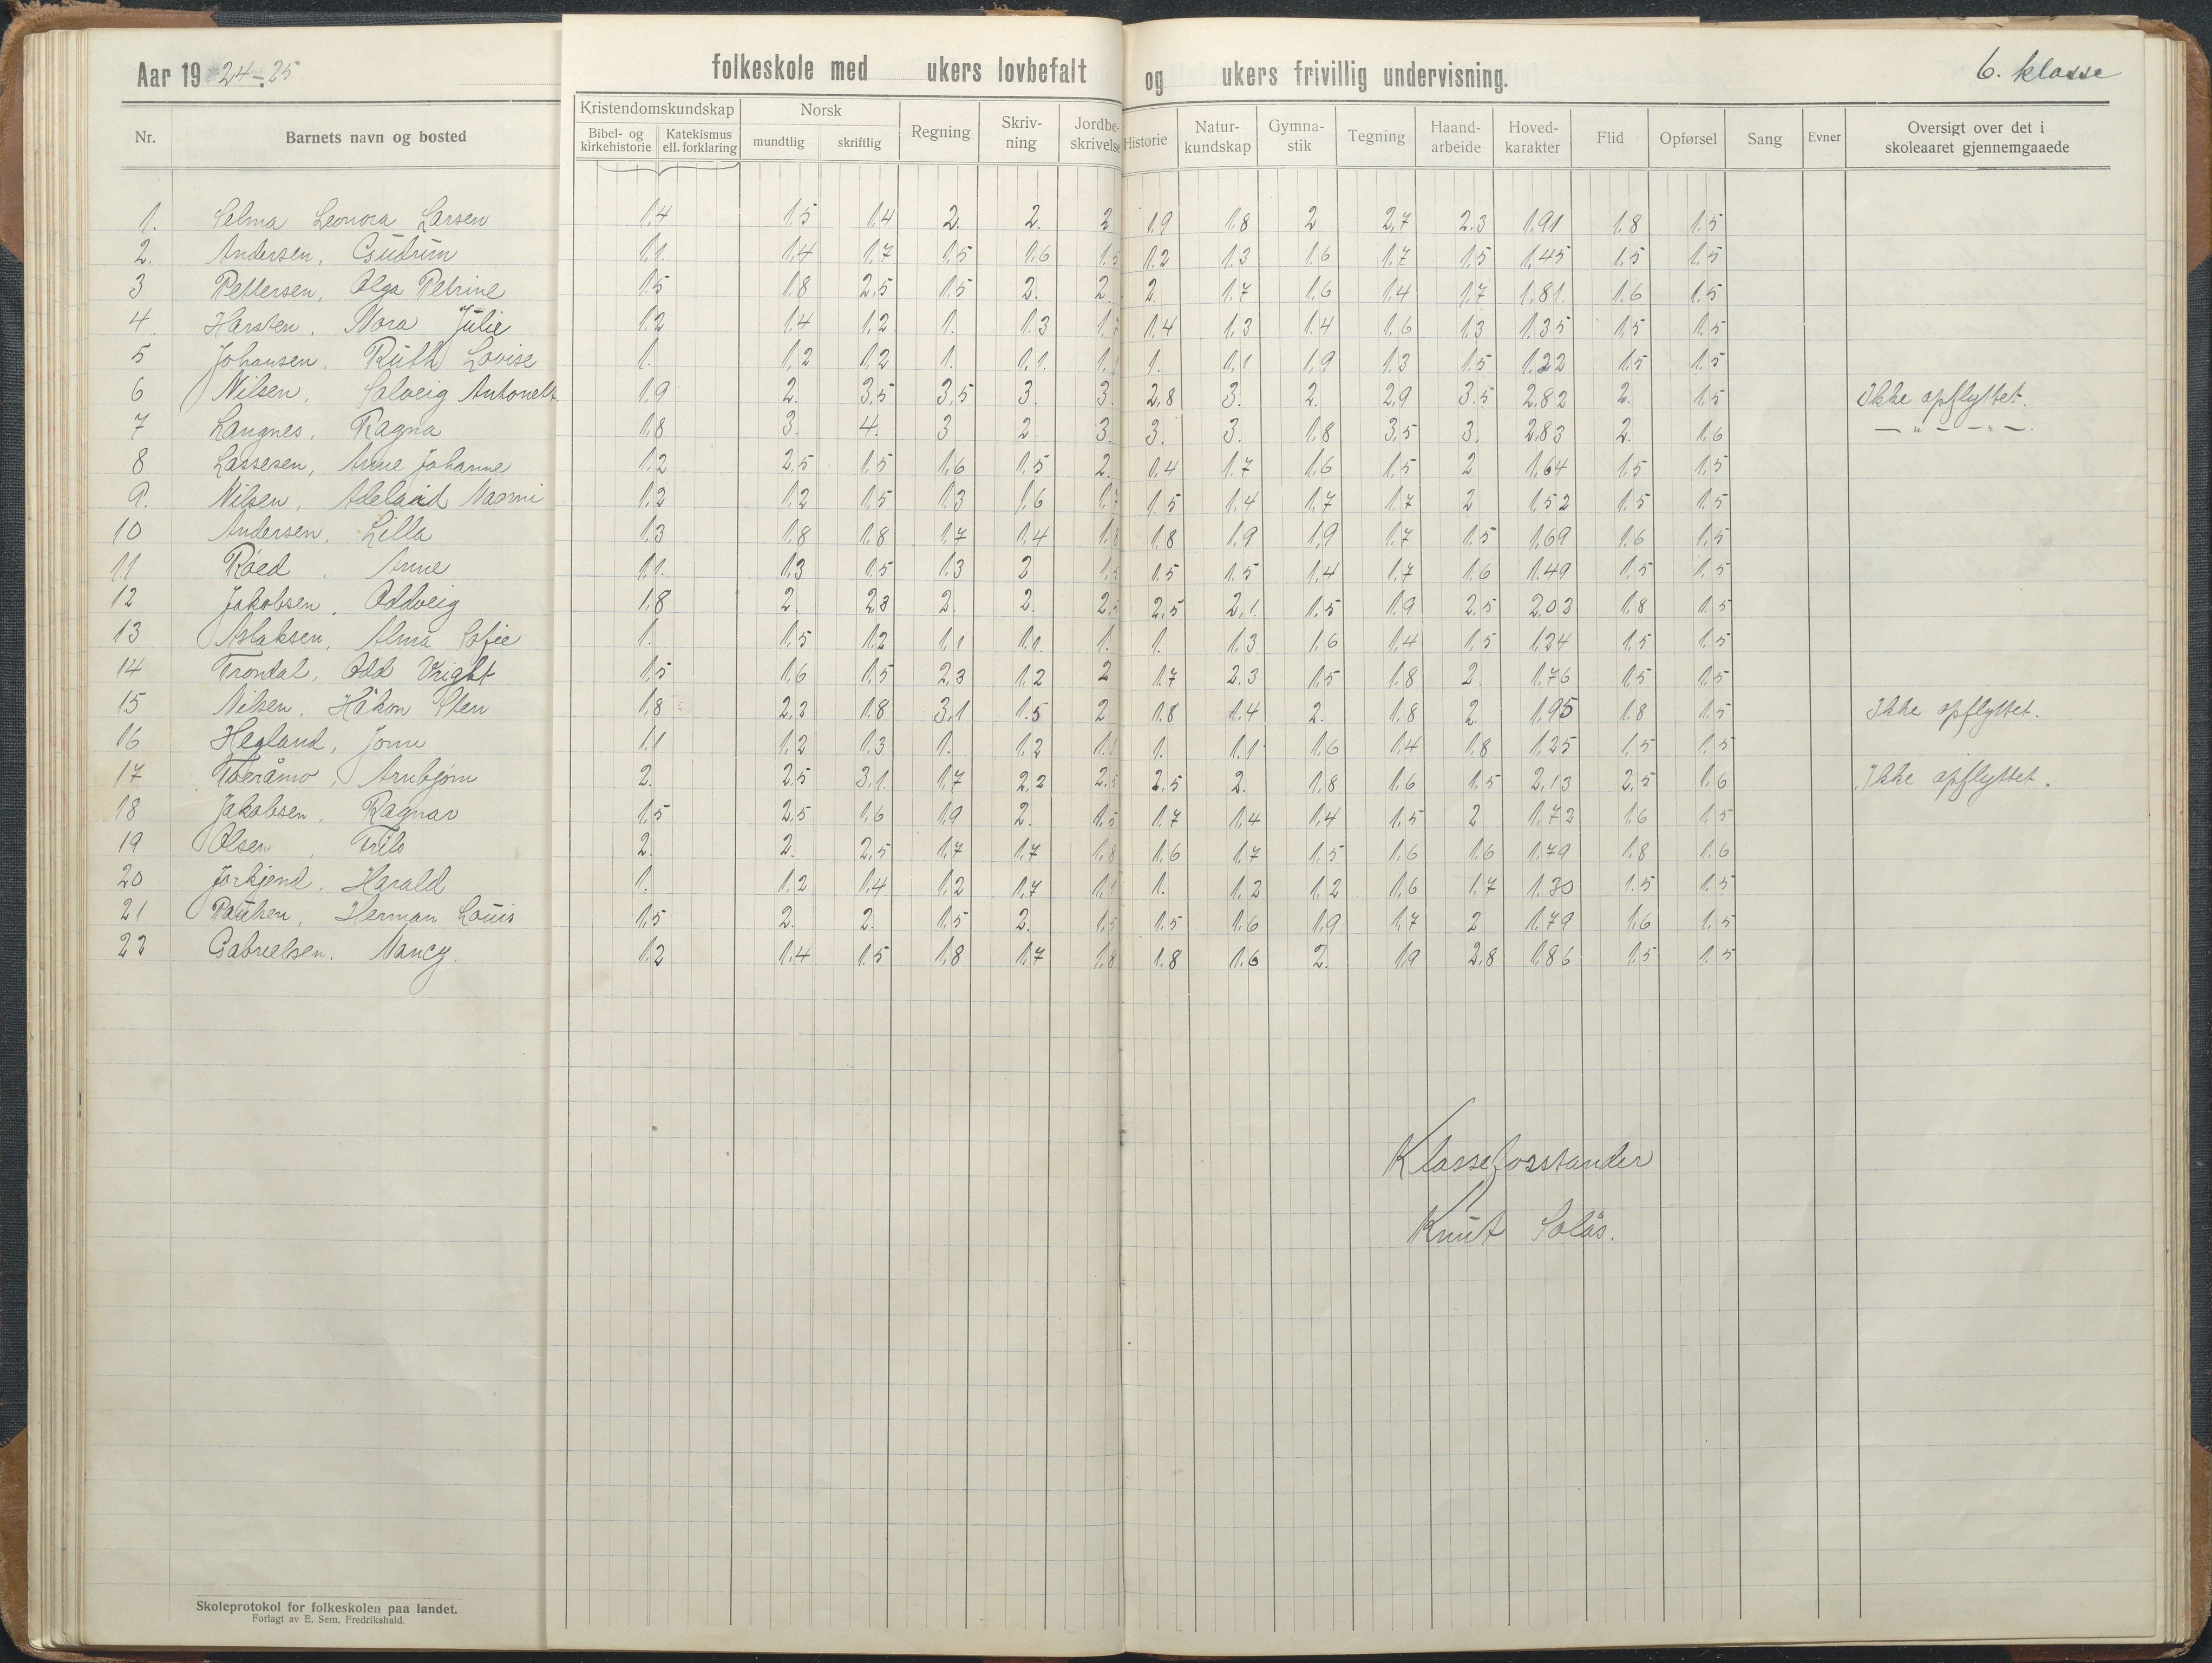 Aar 1924-25 folkeskole med ukers lovbefalt og ukers frivillig undervisning. 6. klasse
Nr. Barnets navn og bosted Kristendomskundskap Bibel- og kirkehistorie Katekismus ell. forklaring Norsk mundtlig skriftlig Regning Skriv-ning Jordbe-skrivelse Historie Natur-kundskap Gymna-stik Tegning Haand-arbeide Hoved-karakter Flid Opførsel Sang Evner Oversigt over det i skoleaaret gjennemgaaede
1. Selma Leonora Larsen 1,4 1,5 1,4 2. 2. 2 1,9 1,8 2 2,7 2,3 1,91 1,8 1,5
2. Andersen, Gudrun 1,1. 1,4 1,7 1,5 1,6 1,5 1,2 1,3 1,6 1,7 1,5 1,45 1,5 1,5
3 Pettersen, Olga Petrine 1,5 1,8 2,5 1,5 2. 2. 2. 1,7 1,6 1,4 1,7 1,81. 1,6 1,5
4. Harsten, Nora Julie 1,2 1,4 1,2 1. 1,3 1,7 1,4 1,3 1,4 1,6 1,3 1,35 1,5 1,5
5 Johansen, Ruth Lovise 1. 1,2 1,2 1. 1,1. 1,1 1. 1,1 1,9 1,3 1,5 1,22 1,5 1,5
6 Nilsen, Solveig Antonett 1,9 2. 3,5 3,5 3. 3. 2,8 3. 2. 2,9 3,5 2,82 2. 1,5 Ikke opflyttet.
7 Langnes, Ragna 1,8 3. 4. 3 2 3. 3. 3. 1,8 3,5 3. 2,83 2. 1,6 — " — — " —.
8 Lassesen, Anne Johanne 1,2 2,5 1,5 1,6 1,5 2. 1,4 1,7 1,6 1,5 2 1,64 1,5 1,5
9. Nilsen, Adelaid Naomi 1,2 1,2 1,5 1,3 1,6 1,7 1,5 1,4 1,7 1,7 2 1,52 1,5 1,5
10 Andersen, Lilla 1,3 1,8 1,8 1,7 1,4 1,8 1,8 1,9 1,9 1,7 1,5 1,69 1,6 1,5
11 Røed, Anne 1,1. 1,3 1,5 1,3 2 1,5 1,5 1,5 1,4 1,7 1,6 1,49 1,5 1,5
12 Jakobsen, Oddveig 1,8 2. 2,3 2. 2. 2,5 2,5 2,1 1,5 1,9 2,5 2,03 1,8 1,5
13 Aslaksen, Alma Sofie 1. 1,5 1,2 1,1 1,1. 1. 1. 1,3 1,6 1,4 1,5 1,24 1,5 1,5
14 Trondal, Odd Vright 1,5 1,6 1,5 2,3 1,2 2 1,7 2,3 1,5 1,8 2. 1,76 1,5 1,5
15 Nilsen, Håkon Sten 1,8 2,3 1,8 3,1 1,5 2 1,8 1,4 2. 1,8 2. 1,95 1,8 1,5 Ikke opflyttet.
16 Hegland, 1,1 1,2 1,3 1. 1,2 1,1 1. 1,1 1,6 1,4 1,8 1,25 1,5 1,5
17 Tveråmo, Arnbjørn 2. 2,5 3,1. 1,7 2,2 2,5 2,5 2. 1,8 1,6 1,5 2,13 2,5 1,6 Ikke opflyttet.
18 Jakobsen, Ragnar 1,5 2,5 1,6 1,9 2. 1,5 1,7 1,4 1,4 1,5 2 1,72 1,6 1,5
19 Olsen, 2. 2. 2,5 1,7 1,7 1,8 1,6 1,7 1,5 1,6 1,6 1,79 1,8 1,6
20 Jørkjend, Harald 1. 1,2 1,4 1,2 1,7 1,1 1. 1,2 1,2 1,6 1,7 1,30 1,5 1,5
21 Paulsen, Herman Louis 1,5 2. 2. 1,5 2. 1,5 1,5 1,6 1,9 1,7 2 1,79 1,6 1,5
22 Gabrielsen. Nancy. 1,2 1,4 1,5 1,8 1,7 1,8 1,8 1,6 2. 1,9 2,8 1,86 1,5 1,5
Klasseforstander
Knut Solås.
Skoleprotokol for folkeskolen paa landet.
Forlagt av E. Sem, Fredrikshald.